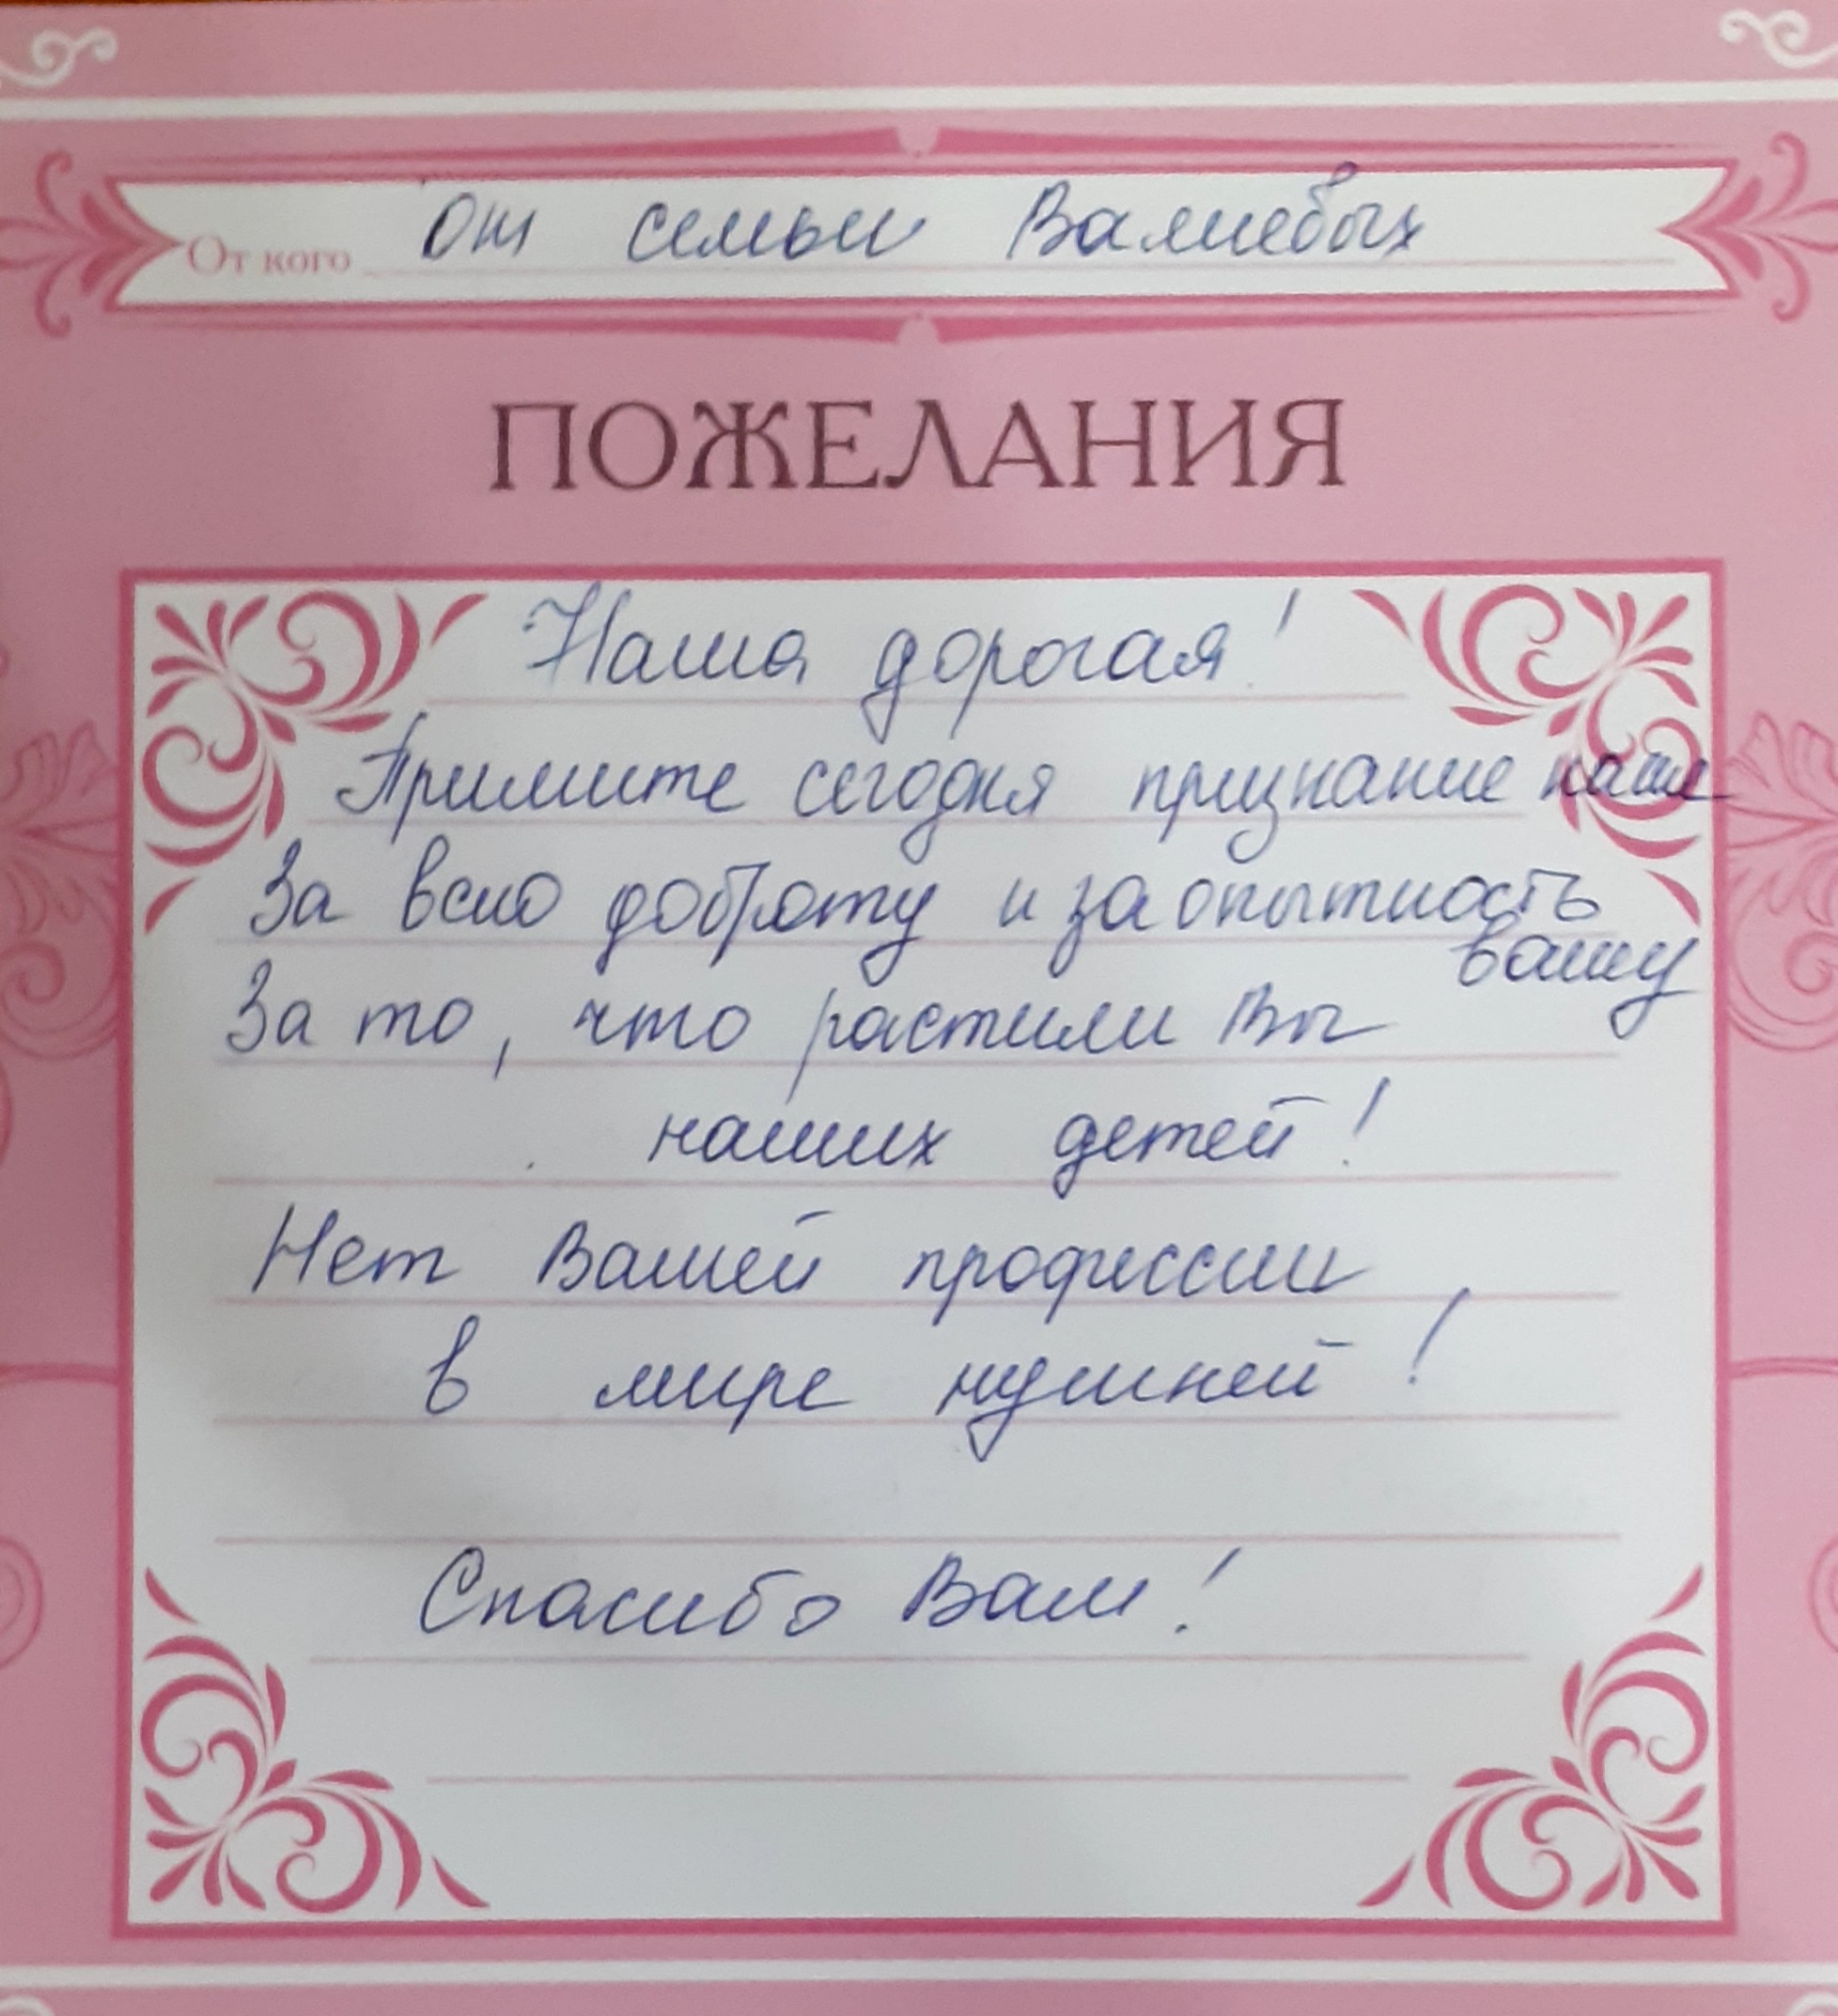 От кого От семьи Валиевых
ПОЖЕЛАНИЯ
Наша дорогая!
Примите сегодня признание наше
За всю доброту и за опытность
вашу
За то, что растили Вы
наших детей!
Нет Вашей профессии
в мире нужней!
Спасибо Вам!